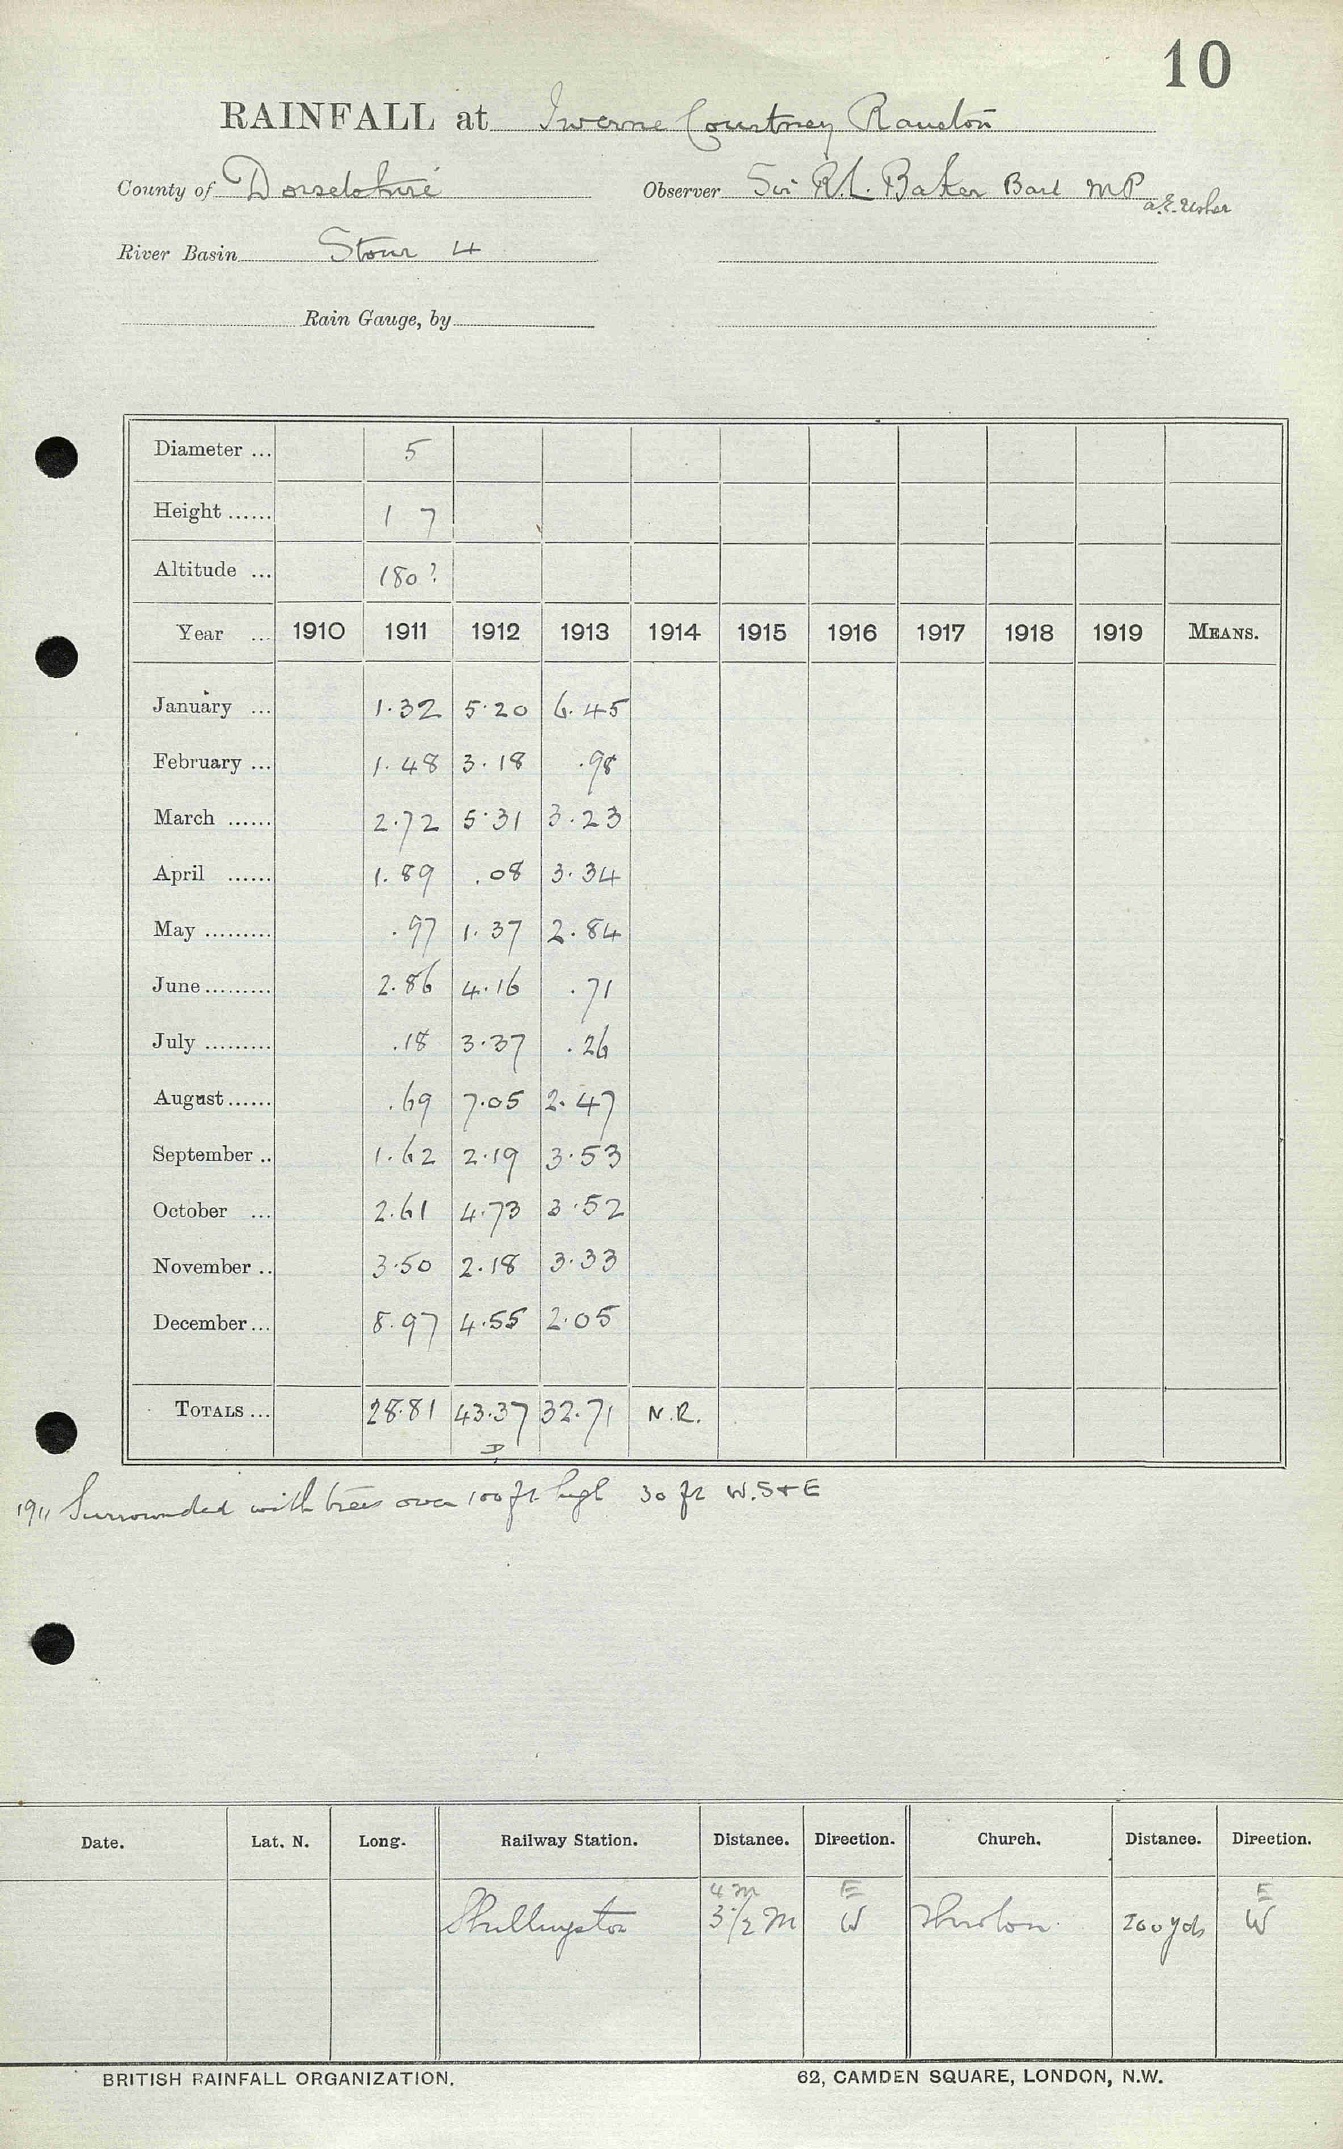 10
RAINFALL at Iwerne Courtney Ranston
County of Dorsetshire Observer Sir R.L. Baker Bart MP
a.E. Usher
River Basin Stour 4
Rain Gauge, by
Diameter ... 5
Height ...... 1 7
Altitude ... 180?
Year ... 1910 1911 1912 1913 1914 1915 1916 1917 1918 1919 MEANS.
January ... 1.32 5.20 6.45
February ... 1.48 3.18 .98
March ...... 2.72 5.31 3.23
April ...... 1.89 .08 3.34
May ......... .97 1.37 2.84
June ......... 2.86 4.16 .71
July ......... .18 3.37 .26
August ...... .69 7.05 2.47
September .. 1.62 2.19 3.53
October ... 2.61 4.73 3.52
November .. 3.50 2.18 3.33
December ... 8.97 4.55 2.05
TOTALS ... 28.81 43.37 32.71 N.R.
D
1911 Surrounded with trees over 100 ft high 30 ft W. S & E
Date. Lat. N. Long. Railway Station. Distance. Direction. Church. Distance. Direction.
4 m E E
Shillingston 3 1/2 m W Shroton 200 yds W
BRITISH RAINFALL ORGANIZATION. 62, CAMDEN SQUARE, LONDON, N.W.